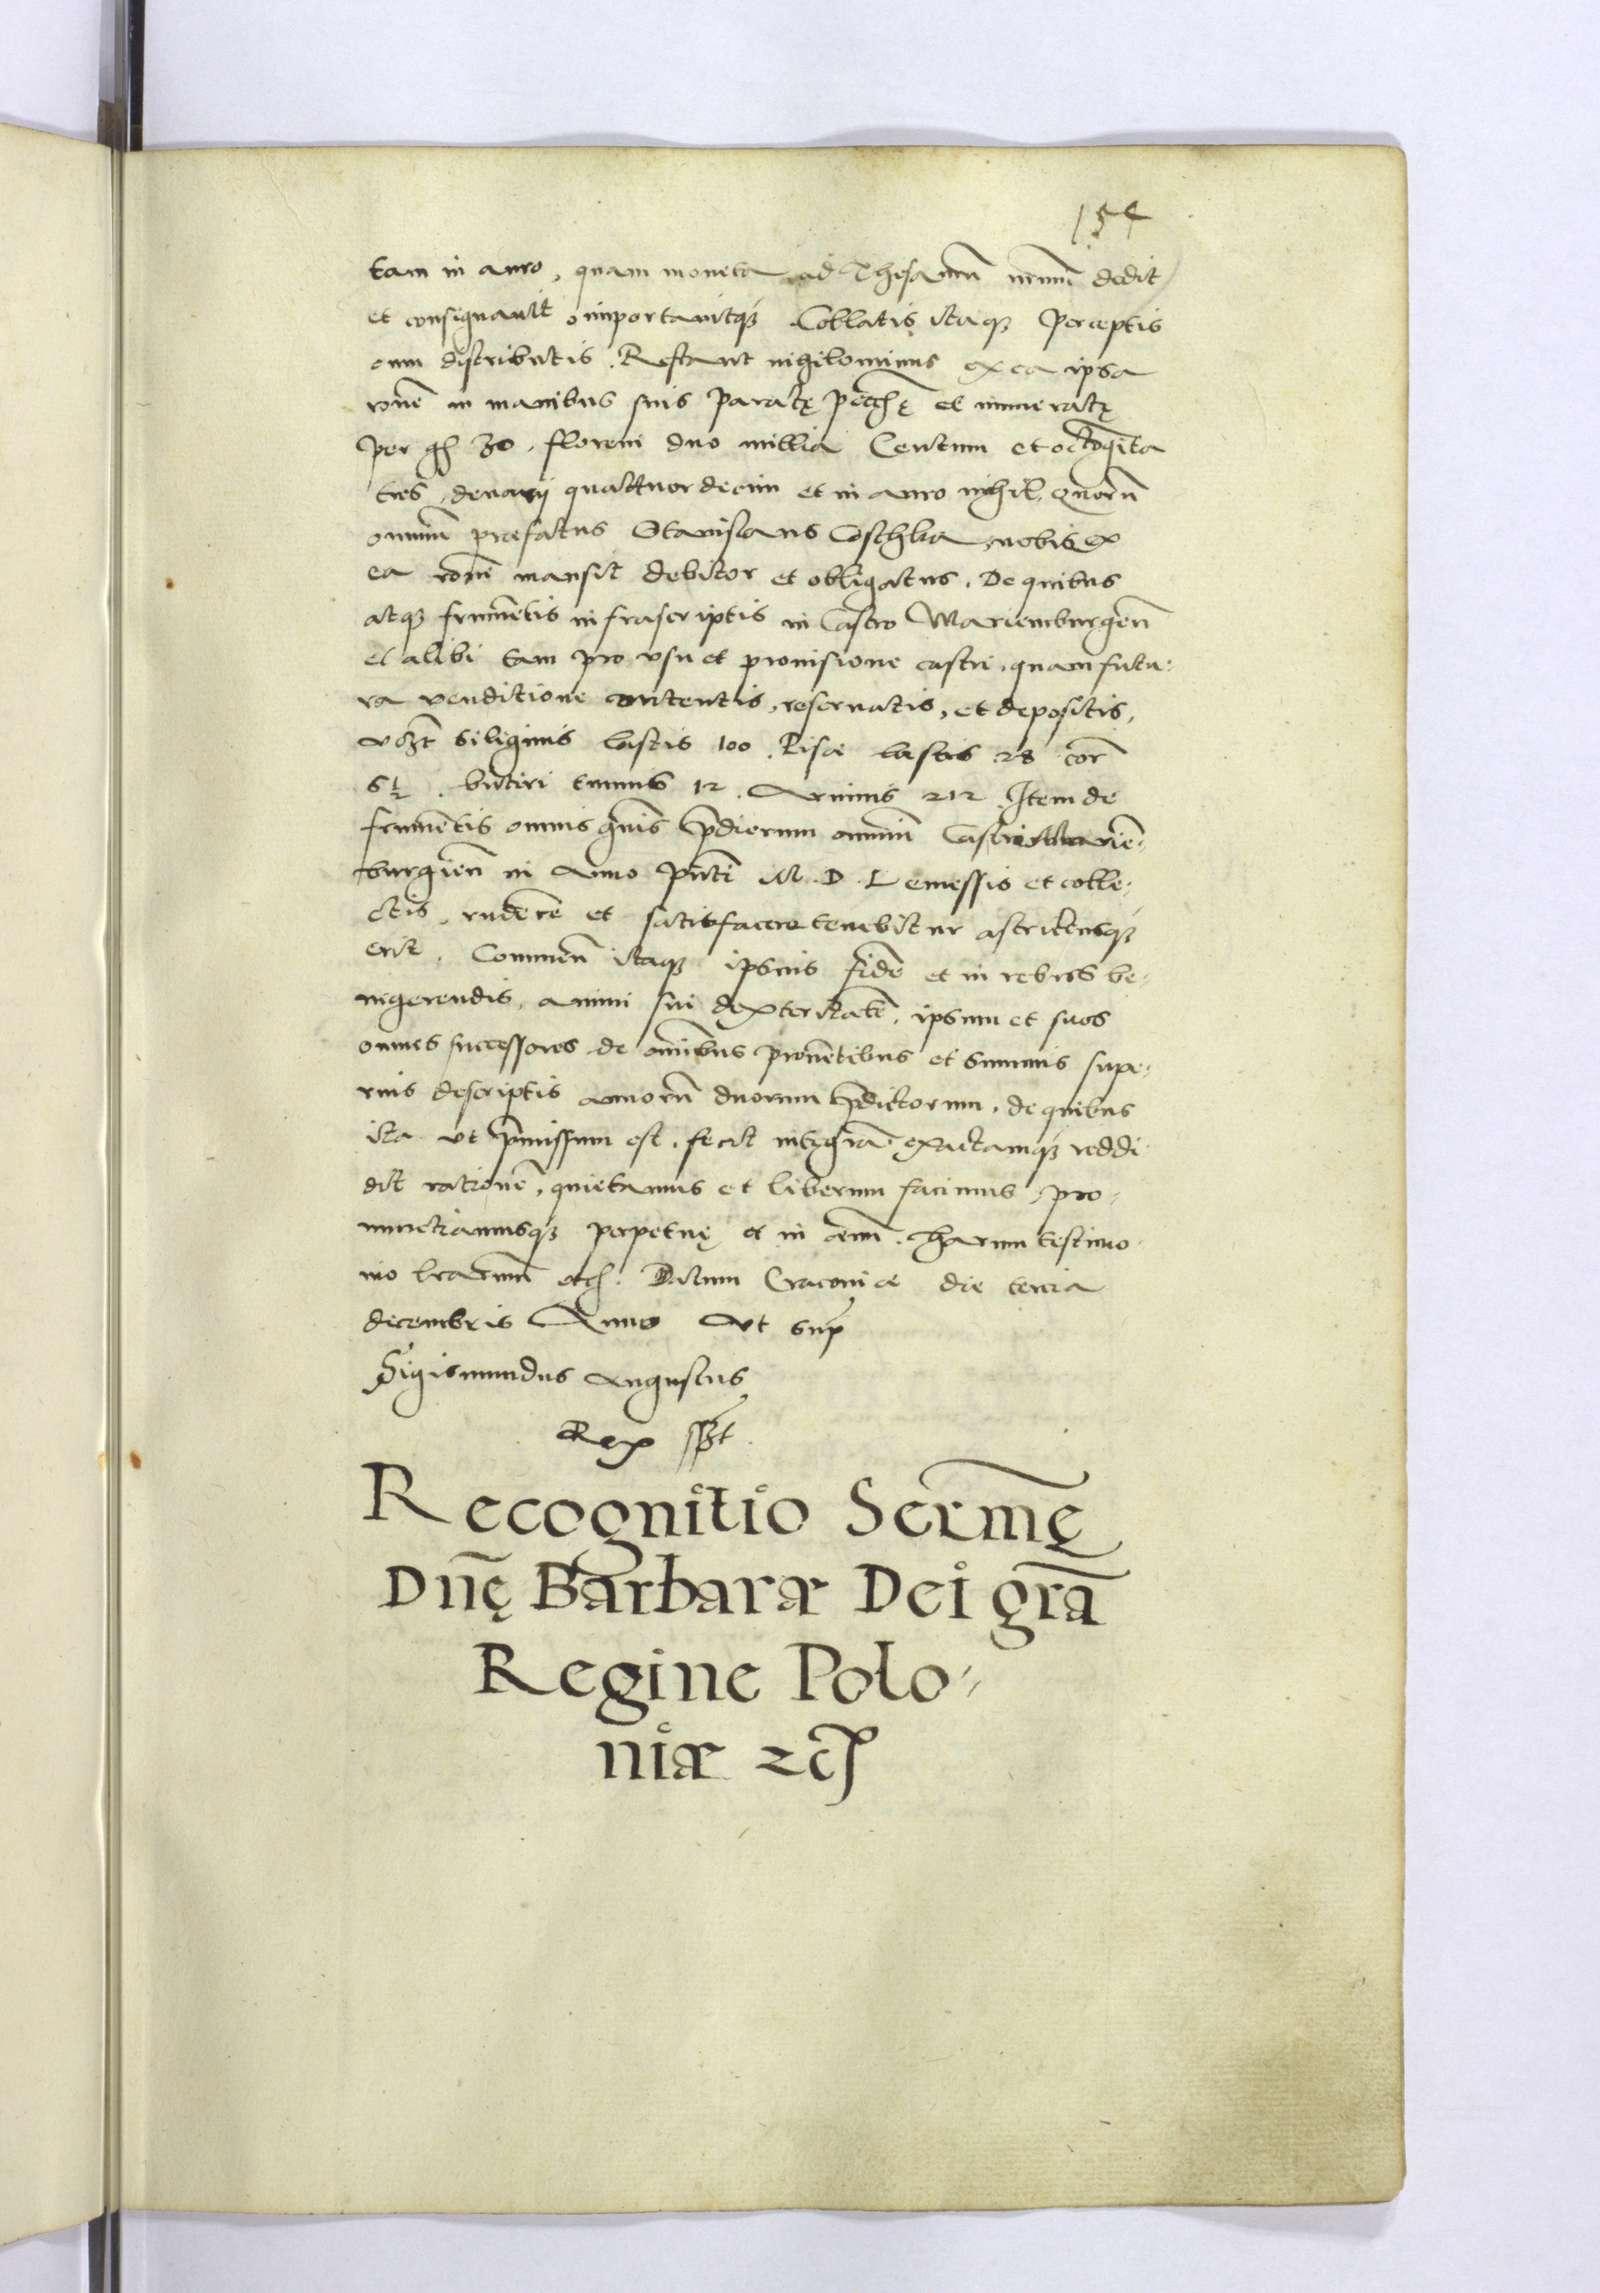 154
tam in auro, quam moneta ad Thesaurũ nrum̃ dedit
et consignavit importavitq3 Collatis itaq3 perceptis
cum distributis. Restant nihilominus ex ea ipsa
rõne in manibus suis paratę pecũę et numeratę
per gỹ 30. floreni duo millia Centum et octogĩta
tres, denarij quattuordecim et in auro nihil, Quorũ
omniũ praefatus Stanislaus Coschka, nobis ex
ea rõne mansit debitor et obligatus. De quibus
atq3 frumẽtis infrascriptis in Castro Mariemburgeñ
et alibi tam pro usu et provisione castri, quam futu-
ra venditione contentis, reservatis, et depositis,
vz̃t siliginis lastis 100. Tritici lastis 28 cor̃
6½. butiri tunnis 12. Arvinis 212 Item de
frumẽtis omnis gñis p̃diorum omniũ Castri Mariẽ-
burgieñ in Anno pñti M. D. L emessis et colle-
ctis, rudere et satisfacere tenebitur astrictusq3
erit. Commeñ itaq3 ipsius fidẽ et in rebus be-
nigerendis animi sui dexteritatẽ, ipsum et suos
omnes successores de omĩbus provẽtibus et summis supe-
rius descriptis annorũ duorum p̃dictorum, de quibus
ita ut p̃missum est, fecit integrã exactamq3 reddi-
dit rationẽ, quietamus et liberum facimus, pro-
nunctiamusq3 perpetuę et in aevũ. Harum testimo-
nio lrarum̃ etc. Datum Cracoviae die tertia
decembris Anno ut sup̃
Sigismundus Augustus
Rex sszt
Recognitio Sermẽ
Dñę Barbarae Dei grã
Regine Polo-
niae 2c̃